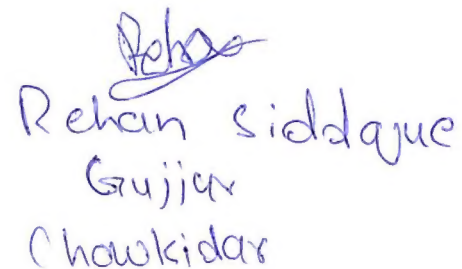 Rehan
Rehan Siddaque
Gujjar
Chowkidar